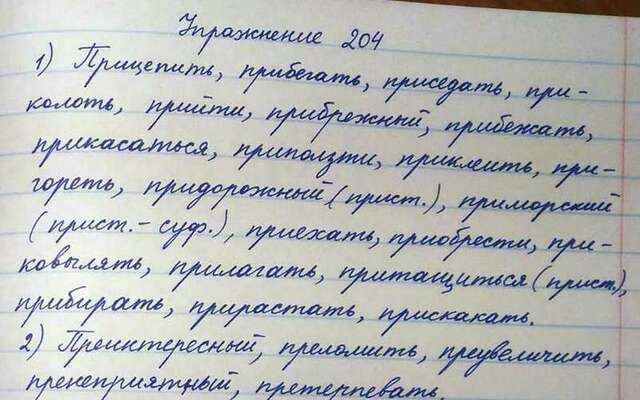 Упражнение 204
1) Прицепить, прибегать, приседать, при-
колоть, прийти, прибрежный, прибежать,
прикасаться, приползти, приклеить, при-
гореть, придорожный (прист.), приморский
(прист.- суф.), приехать, приобрести, при-
ковылять, прилагать, притащиться (прист.),
прибирать, прирастать, прискакать.
2) Преинтересный, преломить, преувеличить,
пренеприятный, претерпевать.